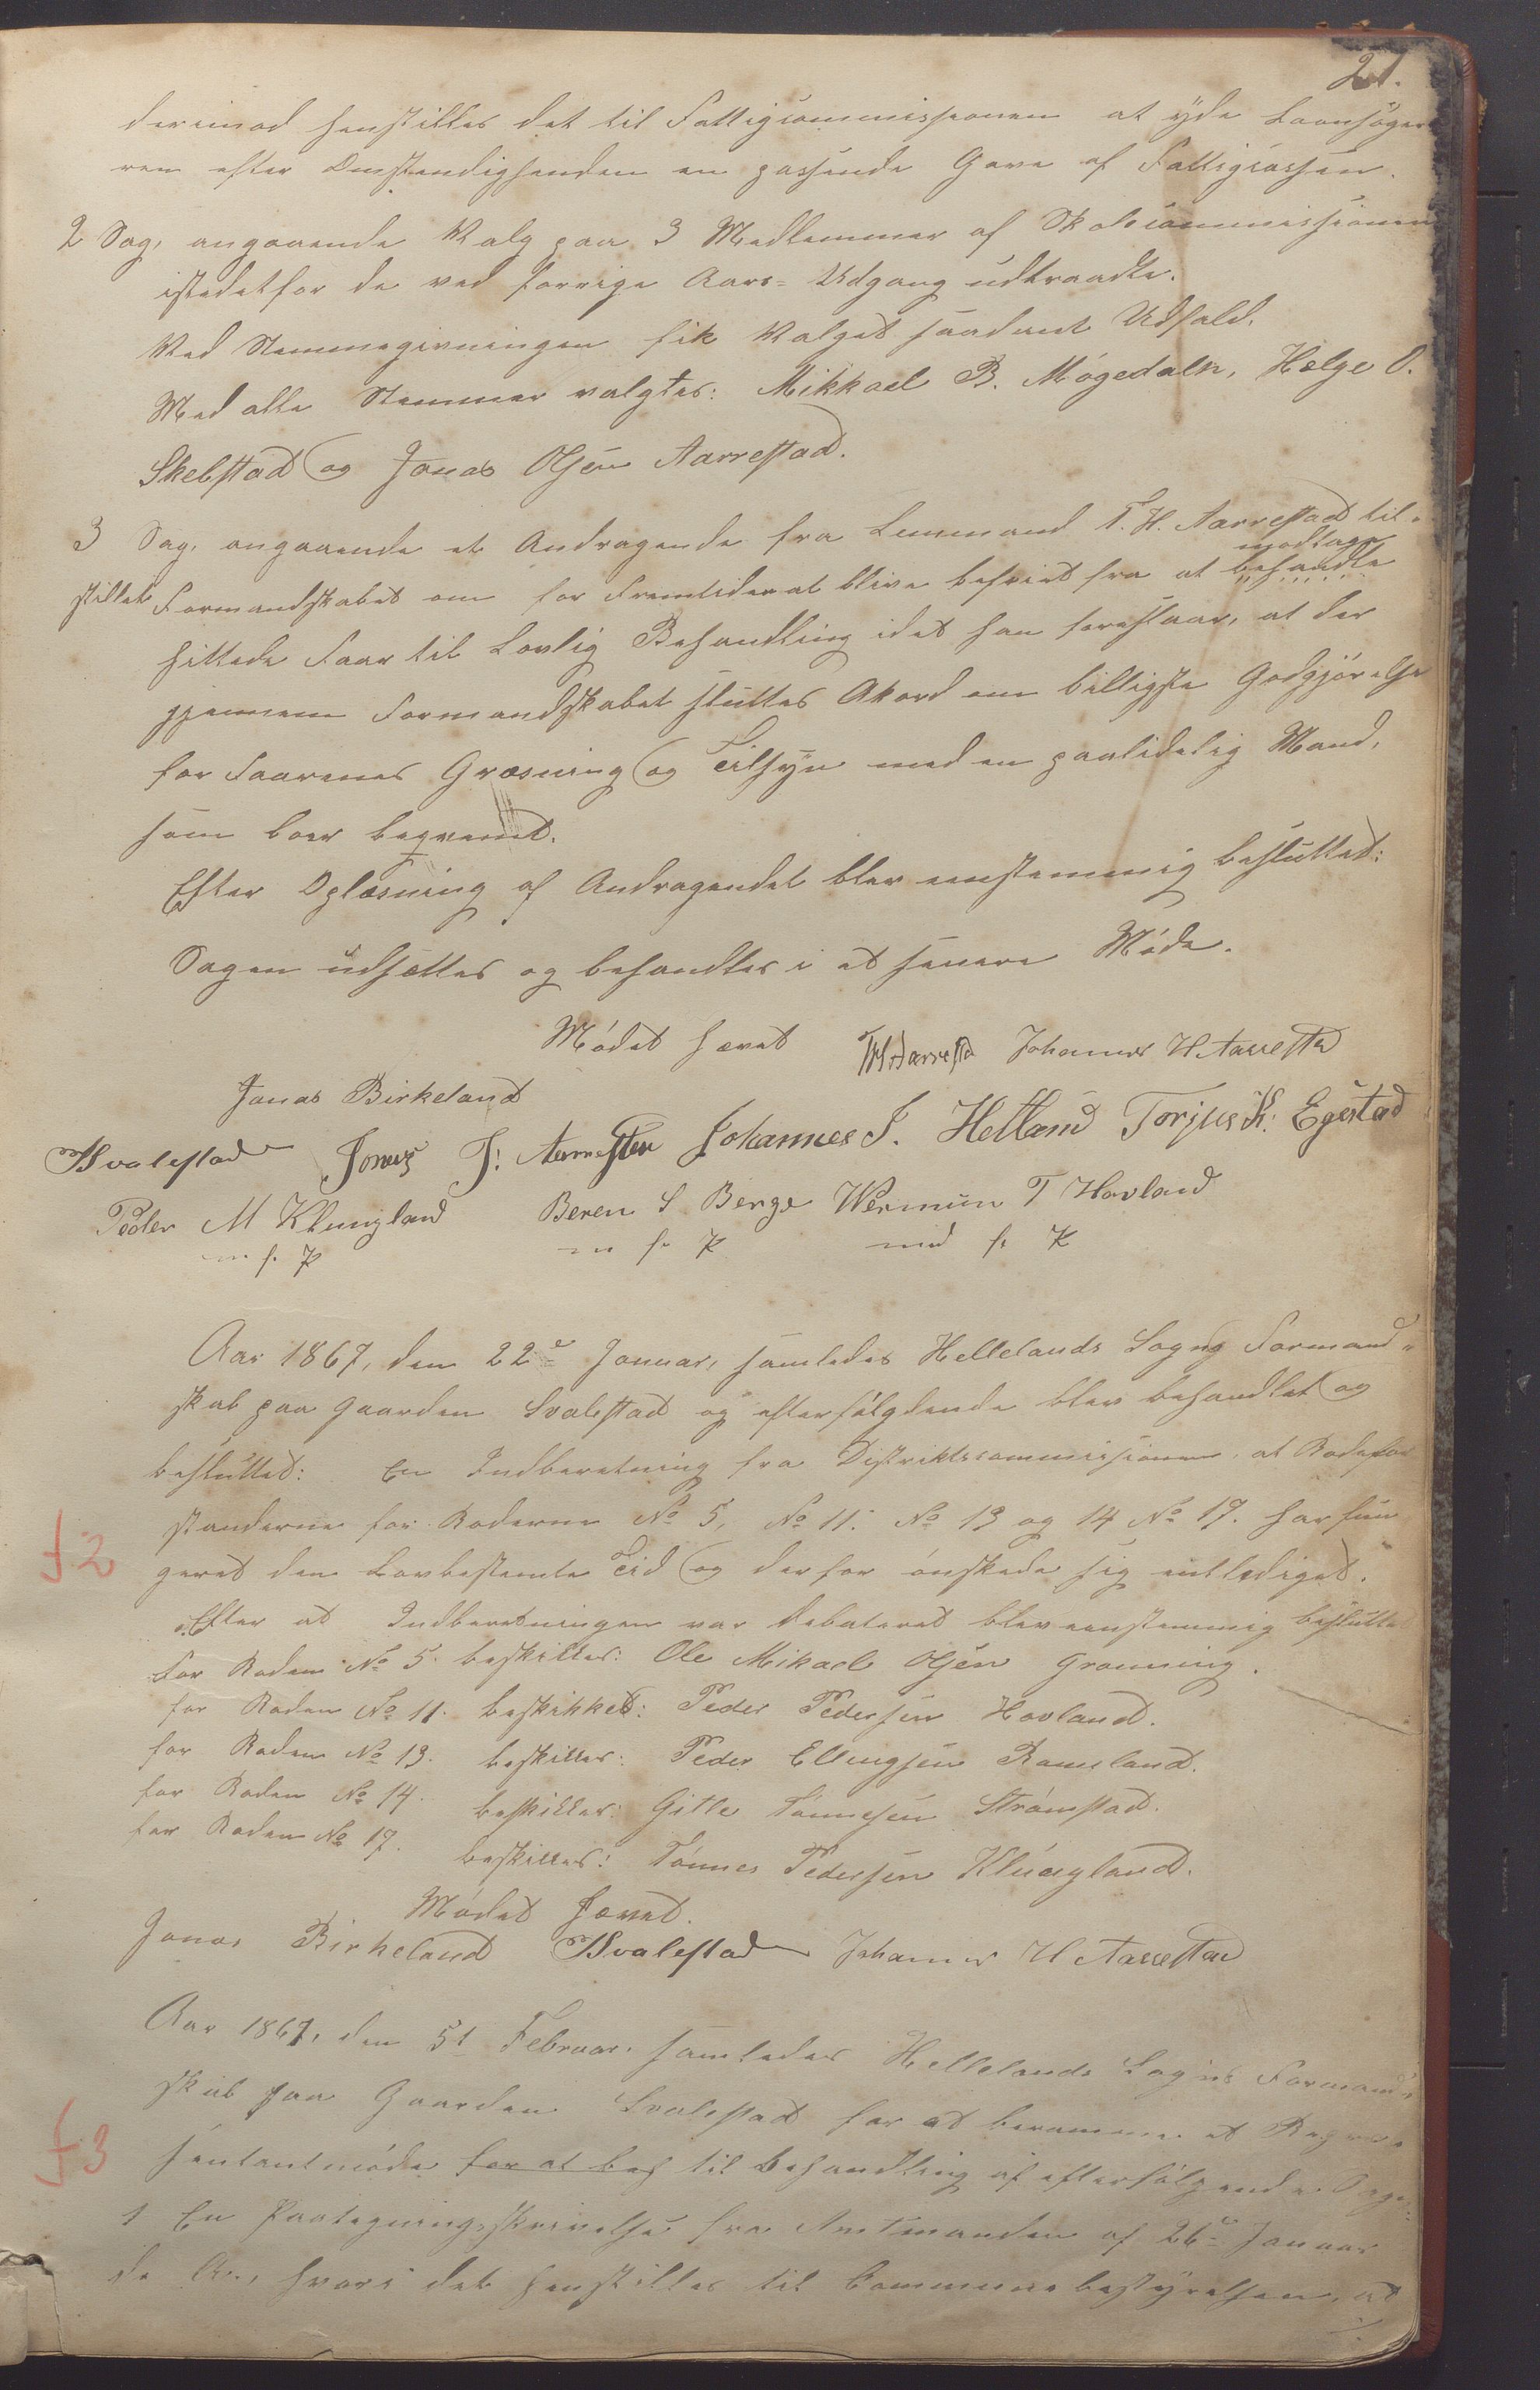 21.
derimod henstilles det til Fattigcommissionen at yde Laansøge-
ren efter Omstendighenden en passende Gave af Fattigcassen.
2 Sag, angaaende Valg paa 3 Medlemmer af Skolecommissionen
istedetfor de ved forrige Aars-Udgang udtraadte.
Ved Stemmegivningen fik Valget saadant Udfald.
Med alle Stemmer valgtes: Mikkael B. Møgedaln, Hælge O.
Skelstad og Jonas Olsen Aarrestad.
3 Sag, angaaende et Andragende fra Lensmand T. H. Aarrestad til-
modtage
stillet Formandskabet om for Fremtiden at blive befriet fra at behandle
hittede Faar til Lovlig Behandling idet han foreslaar, at der
gjennem Formandskabet sluttes Akord om billigste Godgjörelse
for Faarenes Græsning og Tilsyn med en paalidelig Mand,
som boer beqvemt.
Efter Oplæsning af Andragendet blev eenstemmig besluttet:
Sagen udsættes og behandles i et senere Møde.
Mödet hævet THAarresta Johannes H Aarrestad
Jonas Birkeland
KSvalestad Jonas J. Aarrestad Johannes J. Helland Torjus K. Egestad
Peder M Klungland Beren S Berge Wermun T Hovland
m f. P m f. P med f. P
Aar 1867, den 22de Januar, samledes Hellelands Sogns Formand-
skab paa Gaarden Svalestad og efterfölgdende blev behandlet og
besluttet: En Indberetning fra Districtscommissionen, at Rodefor
standerne for Roderne No 5, No 11. No 13 og 14 No 17. har fun
f 2
geret den Lovbestemte Tid og derfor önskede sig entlediget.
Efter at Indberetningen var debateret blev eenstemmig beslutte
For Roden No 5. beskikkes: Ole Mikael Olsen Grøning.
for Roden No 11. beskikket: Peder Pedersen Hovland.
for Roden No 13. beskikkes: Peder Ellingsen Ramsland.
for Roden No 14. beskikkes: Gitle Tønnesen Strömstad.
for Roden No 17. beskikkes: Tönnes Pedersen Klungland.
Mödet hævet.
Jonas Birkeland KSvalestad Johannes H Aarrestad
Aar 1867, den 51 Februar, samledes Hellelands Sogns Formand-
skab paa Gaarden Svalestad for at beramme et Repræ-
f 3
sentantmöde for at beh til Behandling af efterfølgende Sager:
1 En Paategningsskrivelse fra Amtmanden af 26de Januar
de A., hvori det henstilles til Communebestyrelsen, at